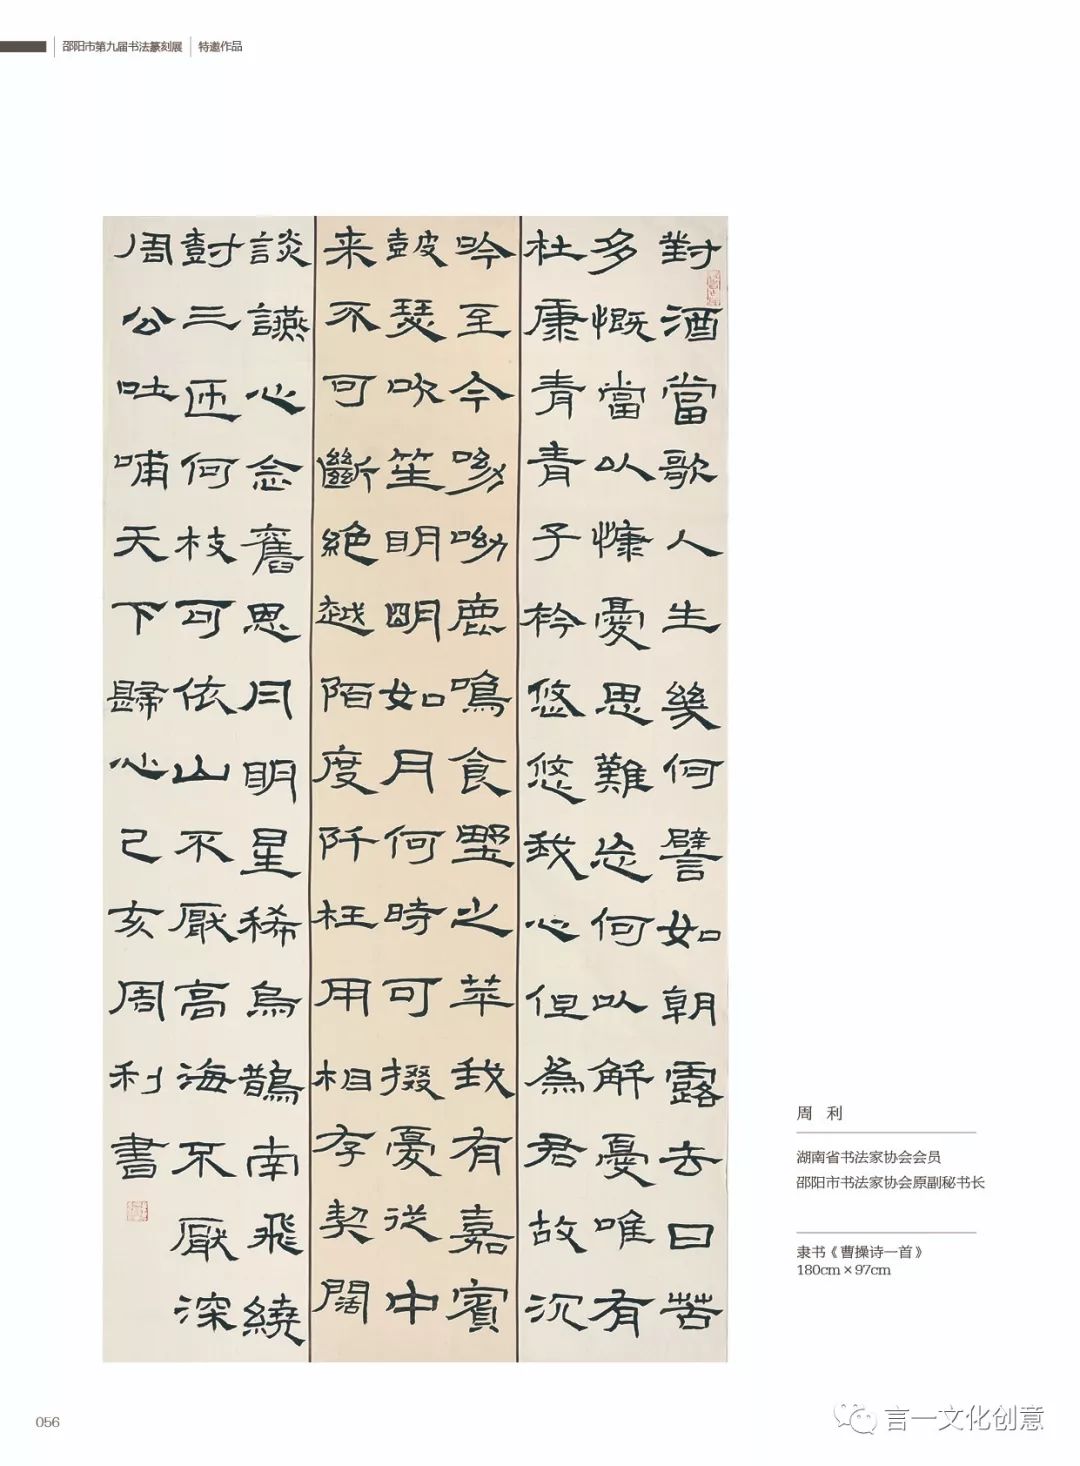 邵阳市第九届书法篆刻展 特邀作品
對酒當歌人生幾何譬如朝露去日苦
多慨當以慷憂思難忘何以解憂唯有
杜康青青子衿悠悠我心但為君故沉
吟至今呦呦鹿鳴食墅之苹我有嘉賓
鼓瑟吹笙明明如月何時可掇憂從中
来不可斷絕越陌度阡枉用相存契闊
談讌心念舊恩月明星稀烏鵲南飛繞
尌三匝何枝可依山不厭高海不厭深
周公吐哺天下歸心己亥周利書
周 利
湖南省书法家协会会员
邵阳市书法家协会原副秘书长
隶书《曹操诗一首》
180cm×97cm
056
言一文化创意